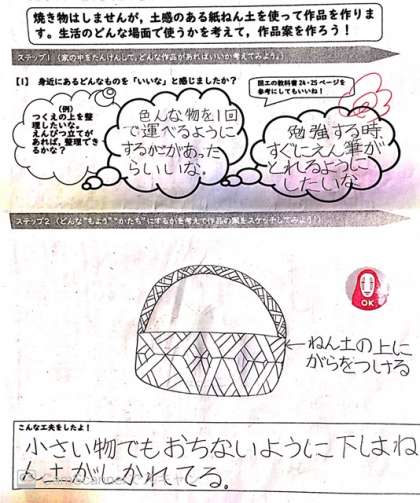 焼き物はしませんが，土感のある紙ねん土を使って作品を作りま
す。生活のどんな場面で使うかを考えて，作品案を作ろう！
ステップ1（家の中をたんけんして，どんな作品があればいいか考えてみよう。）
【1】 身近にあるどんなものを「いいな」と感じましたか？
図工の教科書24・25ページを
参考にしてもいいね！
（例）
つくえの上を整
理したいな。
えんぴつ立てが
あれば，整理でき
るかな？
色んな物を1回
で運べるように
するかごがあった
らいいな。
勉強する時、
すぐにえん筆が
とれるように
したいな
ステップ2（どんな“もよう”“かたち”にするかを考えて作品の案をスケッチしてみよう！）
OK
←ねん土の上に
がらをつける
こんな工夫をしたよ！
小さい物でもおちないように下はね
ん土がしかれてる。